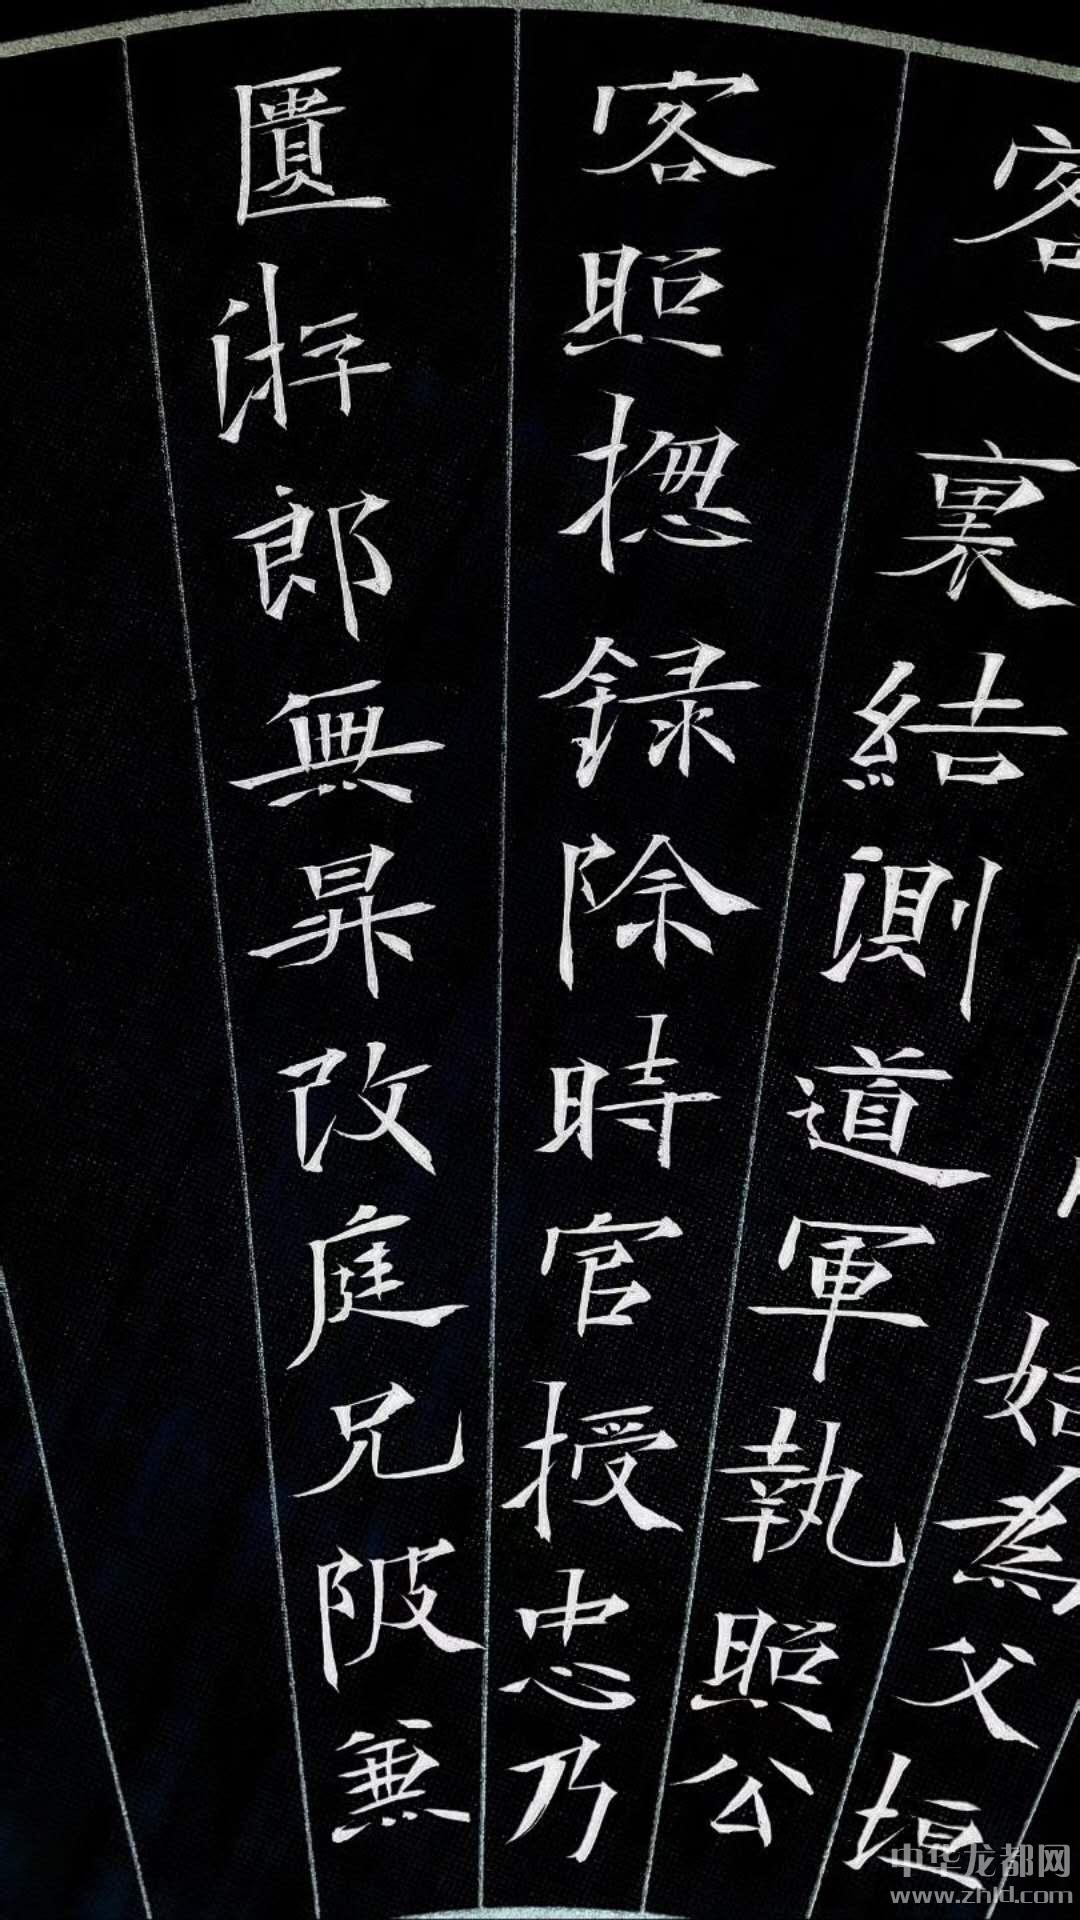 始為父垣
客心裏結測道軍執照公
客照摠録除時官授忠乃
匱游郎無昇改庭兄陂兼
中华龙都网
www.zhld.com